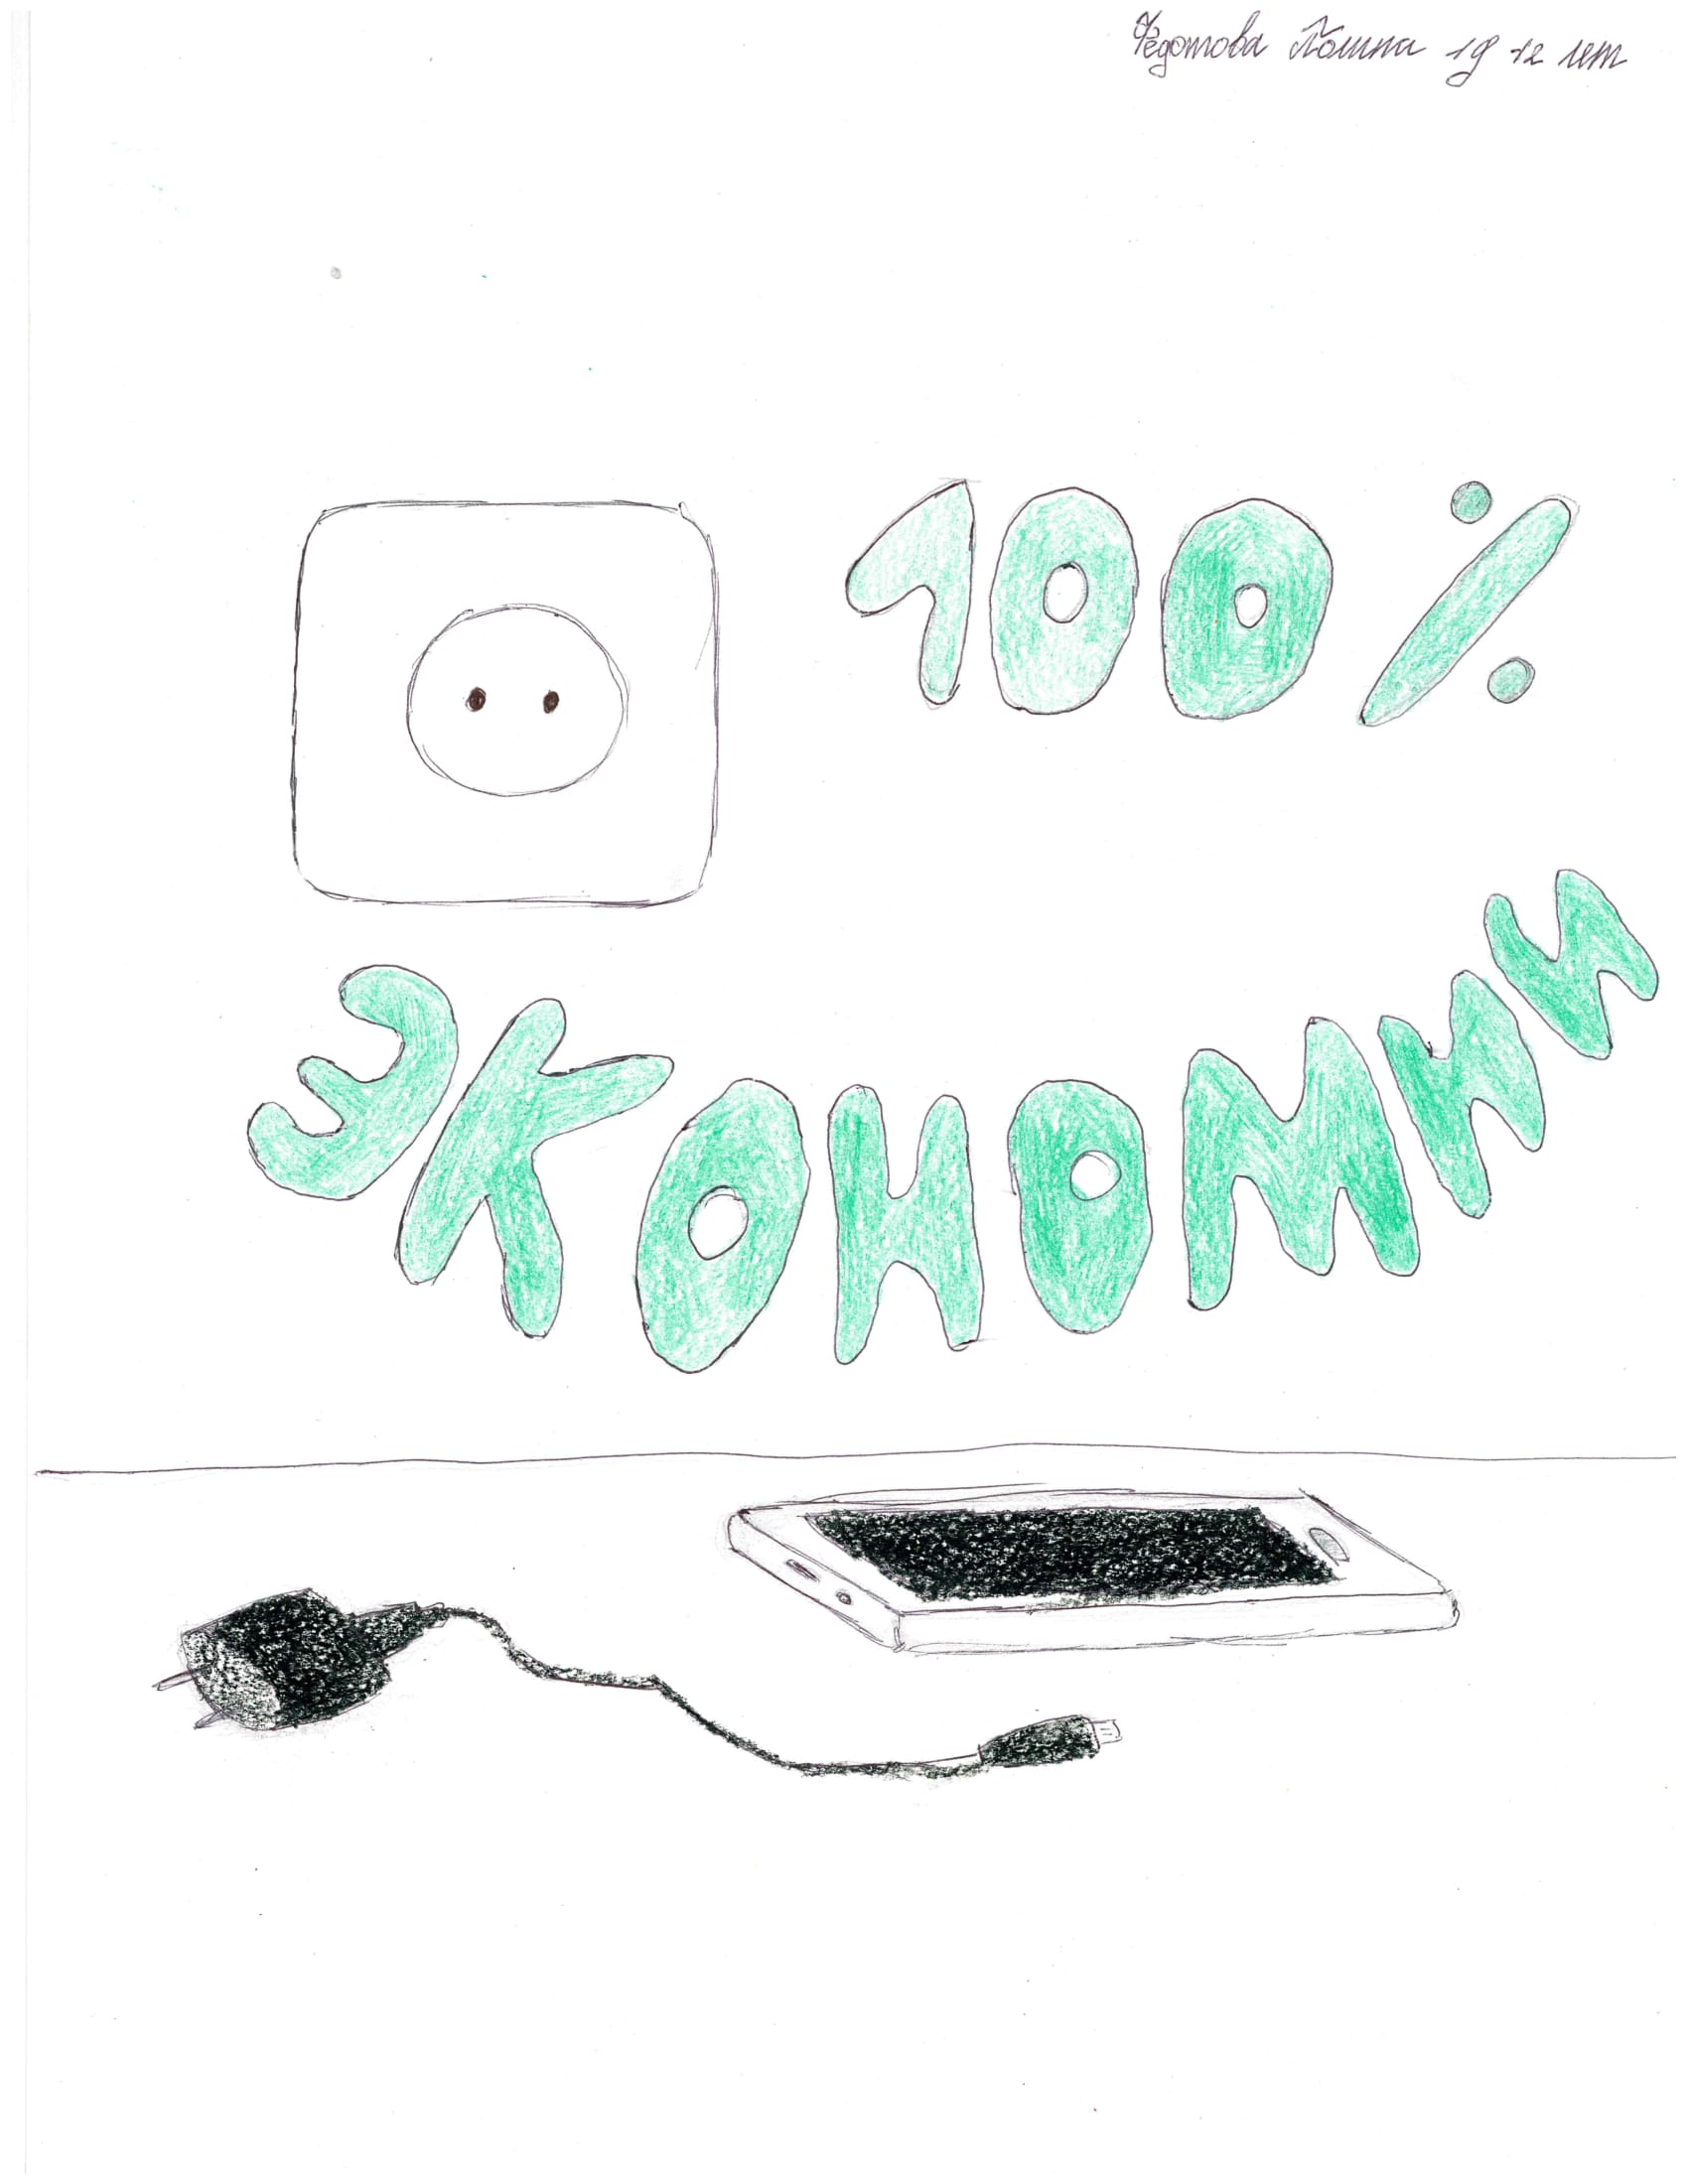 Федотова Полина 19 12 лет
100%
ЭКОНОМИИ